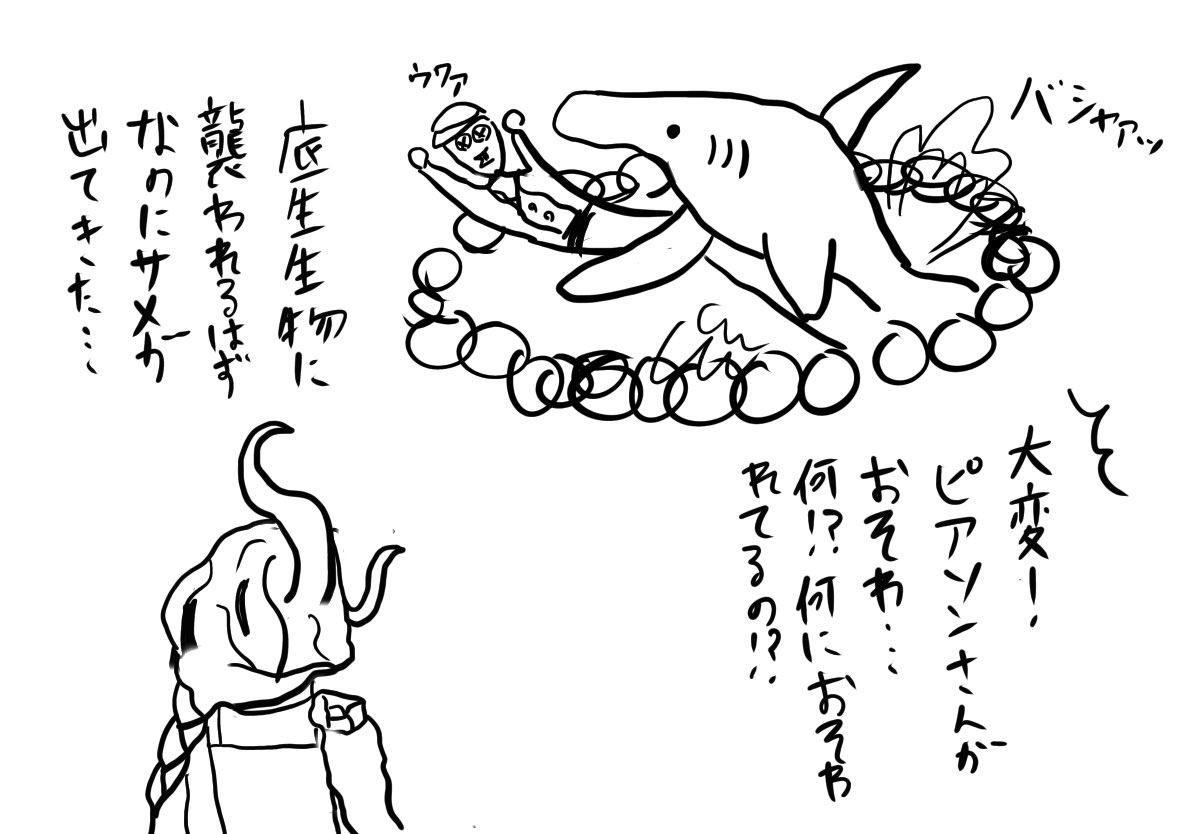 バシャアッ
ウワァ
底生生物に
襲われるはず
なのにサメが
出てきた…
大変!
ピアソンさんが
おそわ…
何!?何におそわ
れてるの!?